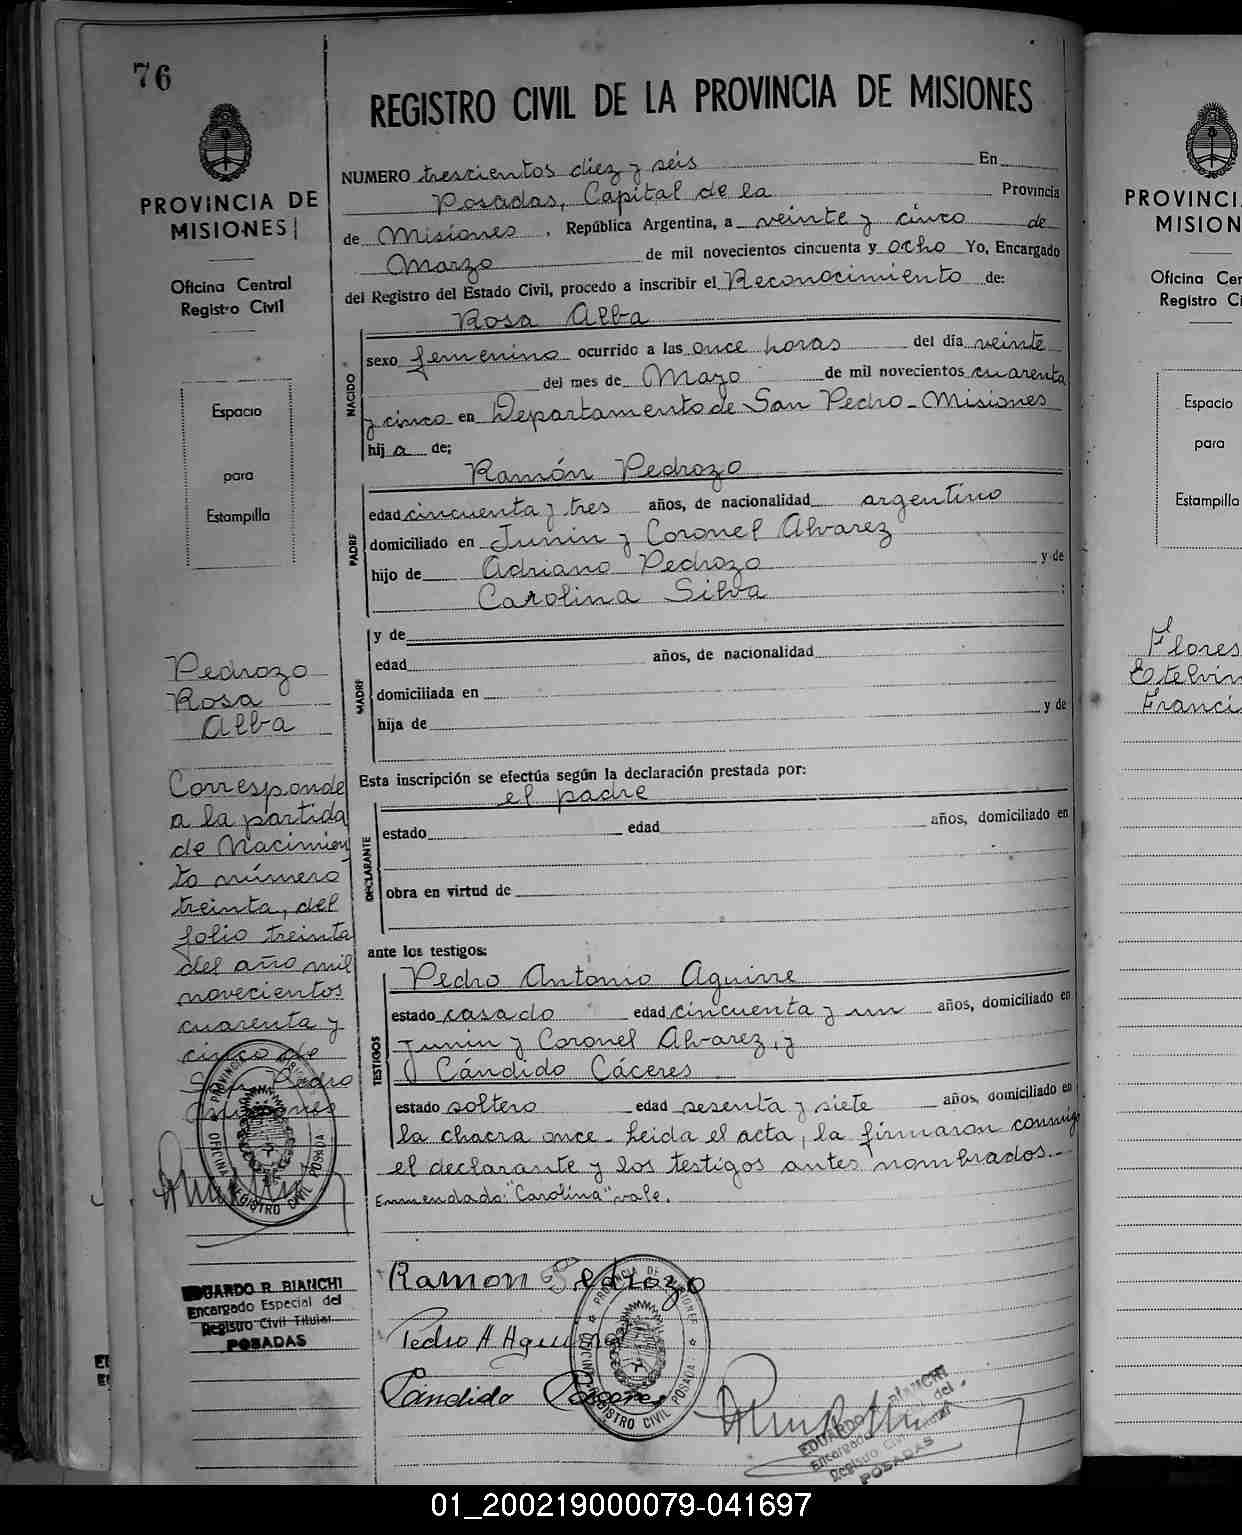 76
PROVINCIA DE
MISIONES
Oficina Central
Registro Civil
Espacio
para
Estampilla
Pedrozo
Rosa
Alba
Corresponde
a la partida
de Nacimien
to número
treinta, del
folio treinta
del año mil
novecientos
cuarenta y
cinco de
San Pedro
Misiones
EDUARDO R. BIANCHI
Encargado Especial del
Registro Civil Titular
POSADAS
REGISTRO CIVIL DE LA PROVINCIA DE MISIONES
NUMERO trescientos diez y seis En
Posadas, Capital de la Provincia
de Misiones, República Argentina, a veinte y cinco de
Marzo de mil novecientos cincuenta y ocho Yo, Encargado
del Registro del Estado Civil, procedo a inscribir el Reconocimiento de:
Rosa Alba
NACIDO
sexo femenino ocurrido a las once horas del día veinte
del mes de Mayo de mil novecientos cuarenta
y cinco en Departamento de San Pedro - Misiones
hij a de;
Ramón Pedrozo
PADRE
edad cincuenta y tres años, de nacionalidad argentino
domiciliado en Junin y Coronel Alvarez
hijo de Adriano Pedrozo y de
Carolina Silva ;
MADRE
y de
edad años, de nacionalidad
domiciliada en
hija de y de
Esta inscripción se efectúa según la declaración prestada por:
el padre
DECLARANTE
estado edad años, domiciliado en
obra en virtud de
ante los testigos:
Pedro Antonio Aguirre
TESTIGOS
estado casado edad cincuenta y un años, domiciliado en
Junin y Coronel Alvarez, y
Cándido Cáceres
estado soltero edad sesenta y siete años, domiciliado en
la chacra once. Leida el acta, la firmaron conmigo
el declarante y los testigos antes nombrados.-
Enmendado: "Carolina" vale.
Ramon Pedrozo
Pedro A Aguirre
Cándido Cáceres
PROVINCIA DE MISIONES
OFICINA REGISTRO CIVIL POSADAS
EDUARDO R. BIANCHI
Encargado Especial del
Registro Civil Titular
POSADAS
PROVINCI
MISION
Oficina Cer
Registro Ci
Espacio
para
Estampilla
Flores
Estelvin
Franci
01_200219000079-041697